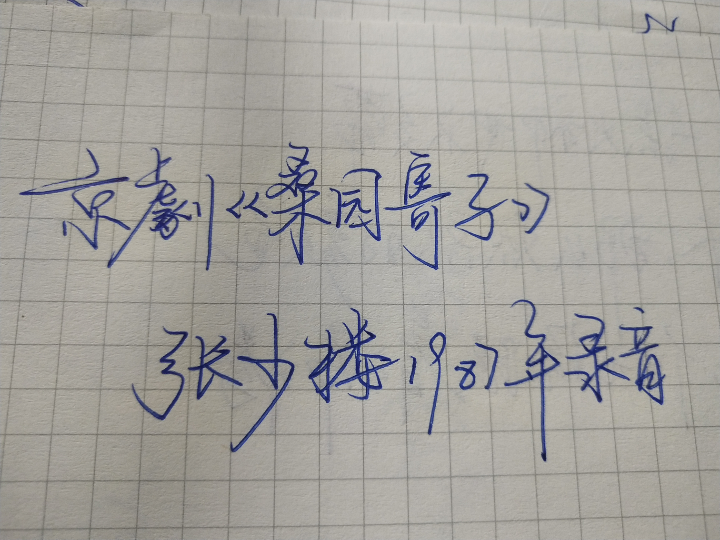 京劇《桑园寄子》
张少楼1987年录音